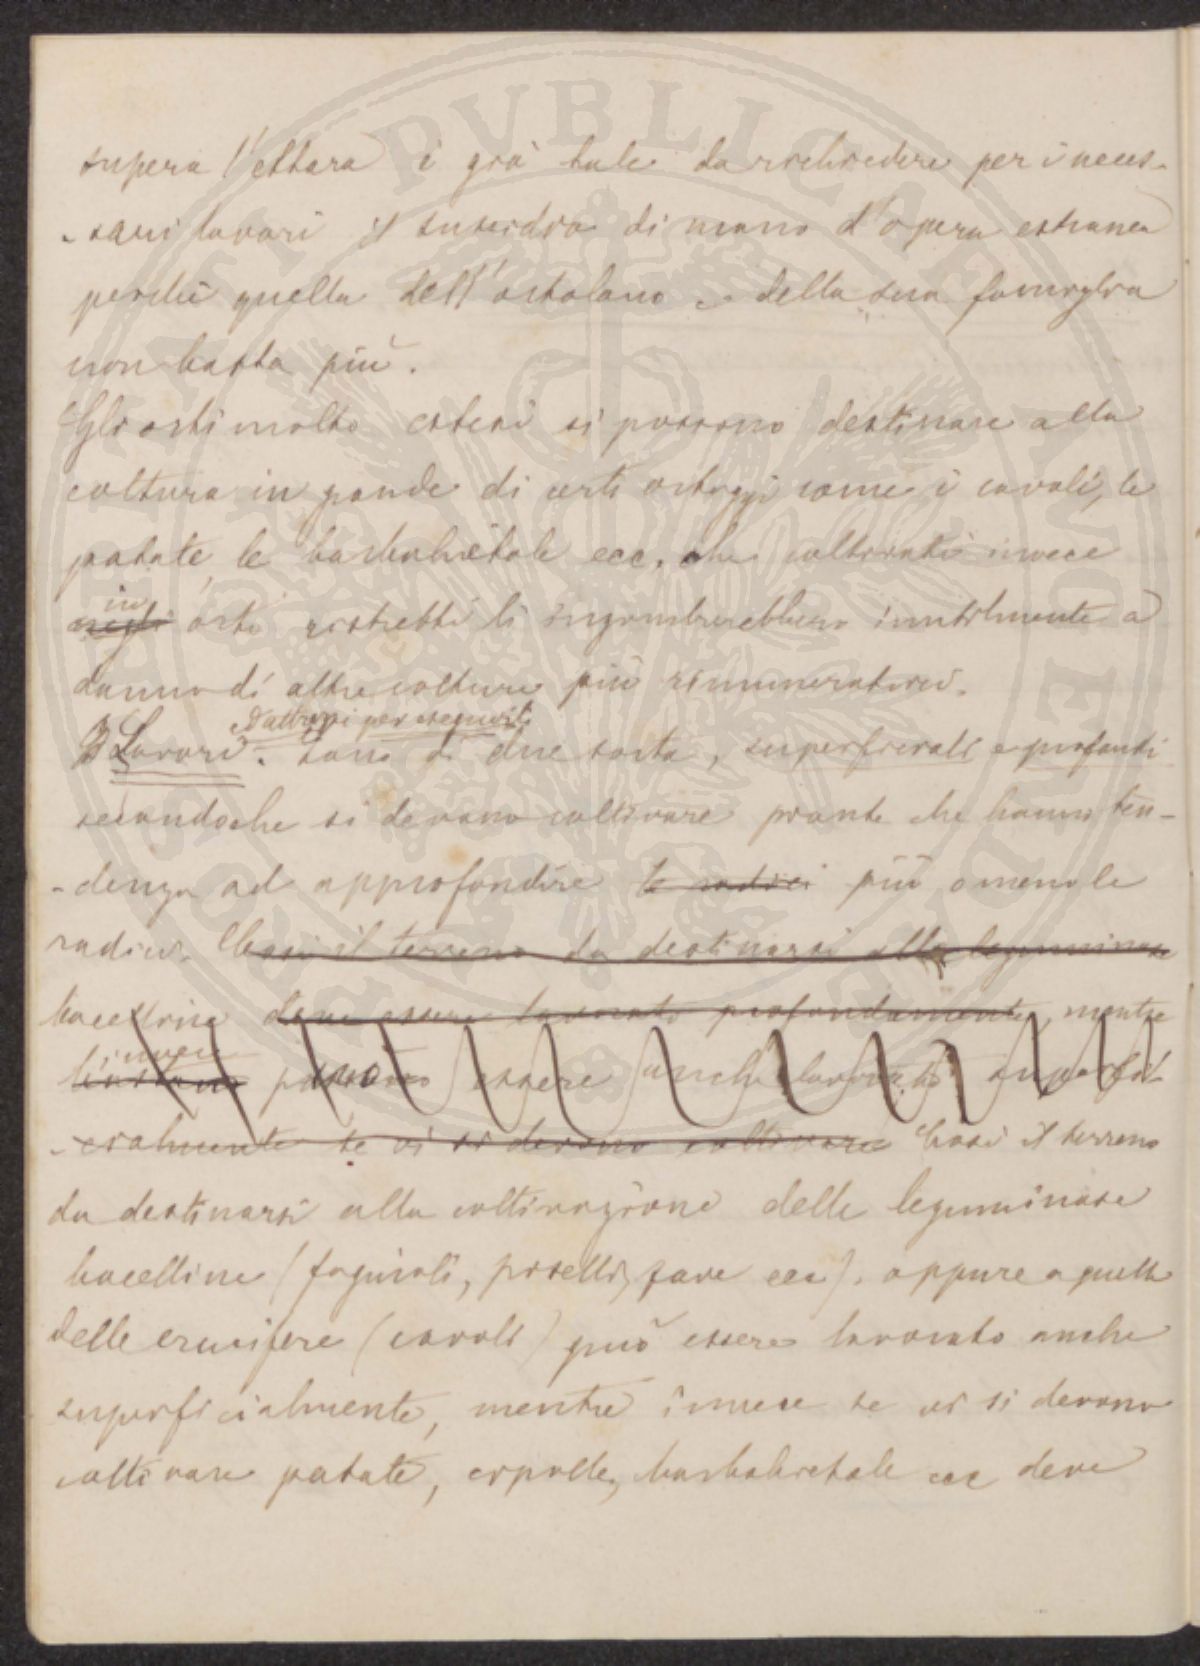 supera l'ettara è già tale da richiedere per i neces-
-sari lavori il sussidio di mano d'opera estranea
perchè quella dell'ortolano e della sua famiglia
non basta più.
Gli orti molto estesi si possono destinare alla
coltura in grande di certi ortaggi come i cavoli, le
patate, le barbabietole ecc. che coltivati invece
in
negli orti ristretti li ingombrerebbero inutilmente a
danno di altre colture più rimuneratrici.
d'attrezzi per eseguirli
Lavori. Sono di due sorta, superficiali e profondi
secondochè si devono coltivare piante che hanno ten-
-denza ad approfondire le radici più o meno le
radici. Così il terreno da destinarsi alle leguminose
bacelline deve essere lavorato profondamente, mentre
invece
possono essere anche lavorati superfi-
-cialmente se vi si devono coltivare Così il terreno
da destinarsi alla coltivazione delle leguminose
bacelline (fagiuoli, piselli, fave ecc). oppure a quella
delle crucifere (cavoli) può essere lavorato anche
superficialmente, mentre invece se vi si devono
coltivare patate, cipolle, barbabietole ecc deve